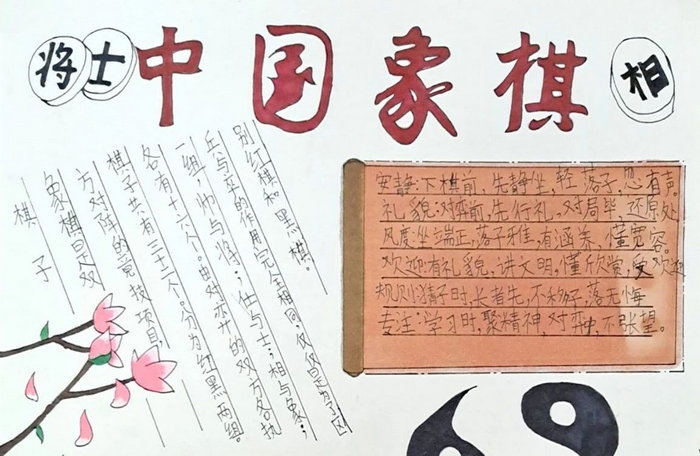 将
士
中国象棋
相
棋子
象棋是双
方对阵的竞技项目,
棋子共有三十二个。分为红黑两组。
各有十六个。由对弈的双方各执
一组,帅与将;仕与士;相与象;
兵与卒的作用完全相同,仅仅是为了区
别红棋和黑棋。
安静:下棋前,先静坐,轻落子,忌有声。
礼貌:对弈前,先行礼。对局毕,还原处
风度:坐端正,落子雅,有涵养,懂宽容。
欢迎:有礼貌,讲文明,懂欣赏,受欢迎
规则:猜子时,长者先,不移子,落无悔
专注:学习时,聚精神,对弈中,不张望。